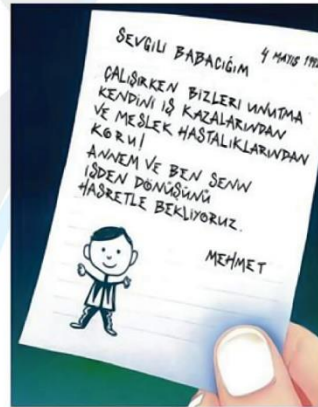 SEVGİLİ BABACIĞIM
4 MAYIS 199
ÇALIŞIRKEN BİZLERİ UNUTMA
KENDİNİ İŞ KAZALARINDAN
VE MESLEK HASTALIKLARINDAN
KORU!
ANNEM VE BEN SENİN
İŞDEN DÖNÜŞÜNÜ
HASRETLE BEKLİYORUZ.
MEHMET